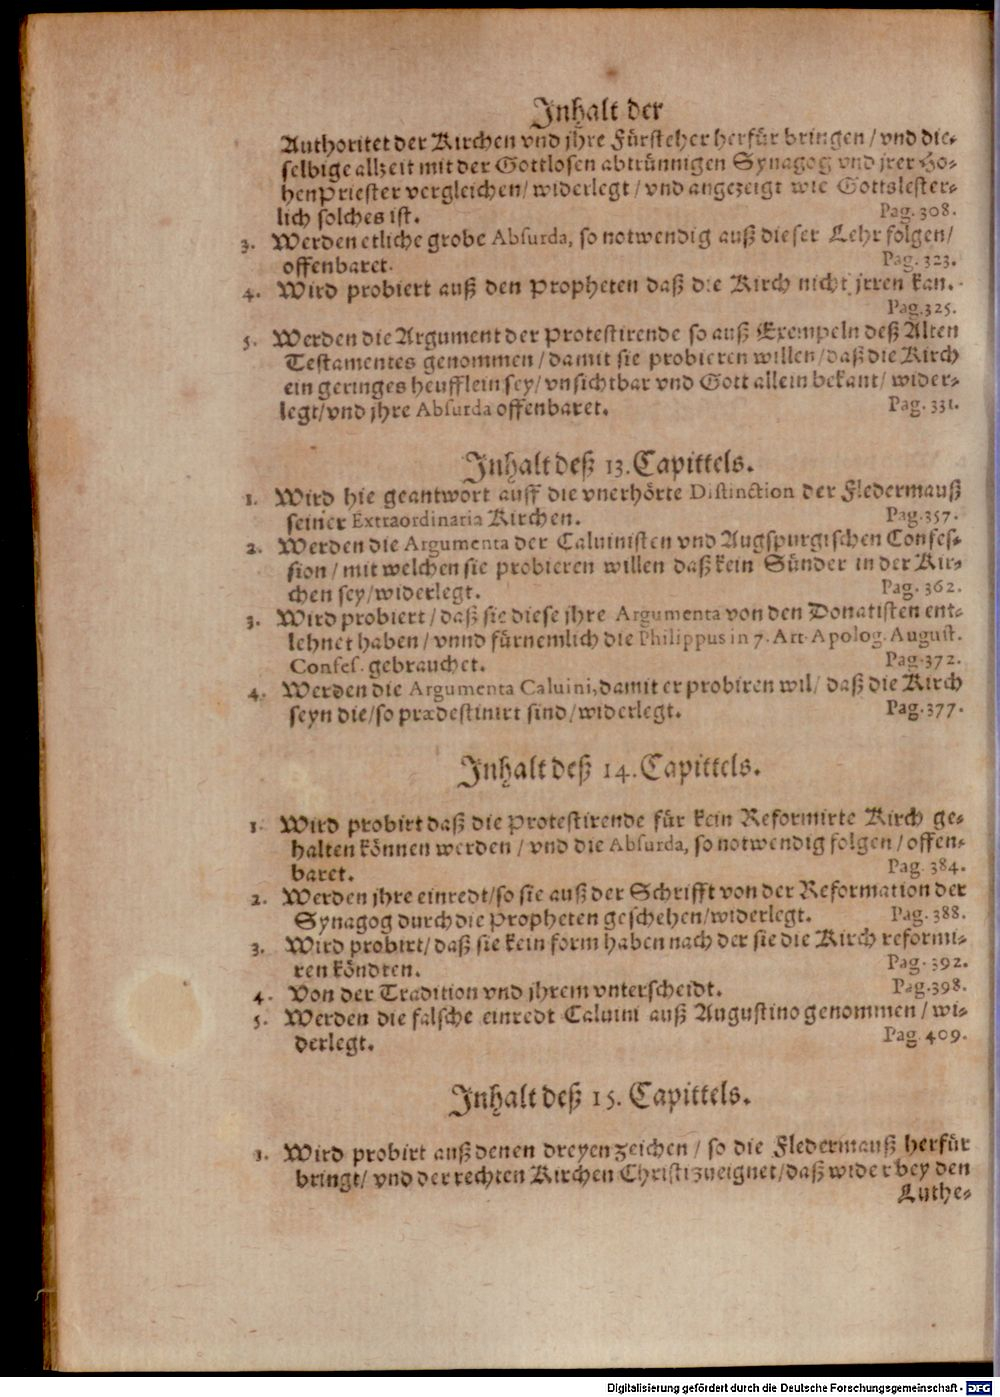 Inhalt der
Authoritet der Kirchen vnd jhre Fürsteher herfür bringen / vnd die-
selbige allzeit mit der Gottlosen abtrünnigen Synagog vnd jrer Ho-
hen Priester vergleichen / widerlegt / vnd angezeigt wie Gottslester-
lich solches ist. Pag. 308.
3. Werden etliche grobe Absurda, so notwendig auß dieser Lehr folgen /
offenbaret. Pag. 323.
4. Wird probiert auß den Propheten daß die Kirch nicht jrren kan.
Pag. 325.
5. Werden die Argument der Protestirende so auß Exempeln deß Alten
Testamentes genommen / damit sie probieren willen / daß die Kirch
ein geringes heufflein sey / vnsichtbar vnd Gott allein bekant / wider-
legt / vnd jhre Absurda offenbaret. Pag. 331.
Inhalt deß 13. Capittels.
1. Wird hie geantwort auff die vnerhörte Distinction der Fledermauß
seiner Extraordinaria Kirchen. Pag. 357.
2. Werden die Argumenta der Caluinisten vnd Augspurgischen Confes-
sion / mit welchen sie probieren willen daß kein Sünder in der Kir-
chen sey / widerlegt. Pag. 362.
3. Wird probiert / daß sie diese jhre Argumenta von den Donatisten ent-
lehnet haben / vnnd fürnemlich die Philippus in 7. Art. Apolog. August.
Confes. gebrauchet. Pag. 372.
4. Werden die Argumenta Caluini, damit er probiren wil / daß die Kirch
seyn die / so prædestinirt sind / widerlegt. Pag. 377.
Inhalt deß 14. Capittels.
1. Wird probirt daß die Protestirende für kein Reformirte Kirch ge-
halten können werden / vnd die Absurda, so notwendig folgen / offen-
baret. Pag. 384.
2. Werden jhre einredt / so sie auß der Schrifft von der Reformation der
Synagog durch die Propheten geschehen / widerlegt. Pag. 388.
3. Wird probirt / daß sie kein form haben nach der sie die Kirch reformi-
ren köndten. Pag. 392.
4. Von der Tradition vnd jhrem vnterscheidt. Pag. 398.
5. Werden die falsche einredt Caluini auß Augustino genommen / wi-
derlegt. Pag. 409.
Inhalt deß 15. Capittels.
1. Wird probirt auß denen dreyen zeichen / so die Fledermauß herfür
bringt / vnd der rechten Kirchen Christi zueignet / daß wider bey den
Luthe-
Digitalisierung gefördert durch die Deutsche Forschungsgemeinschaft - DFG